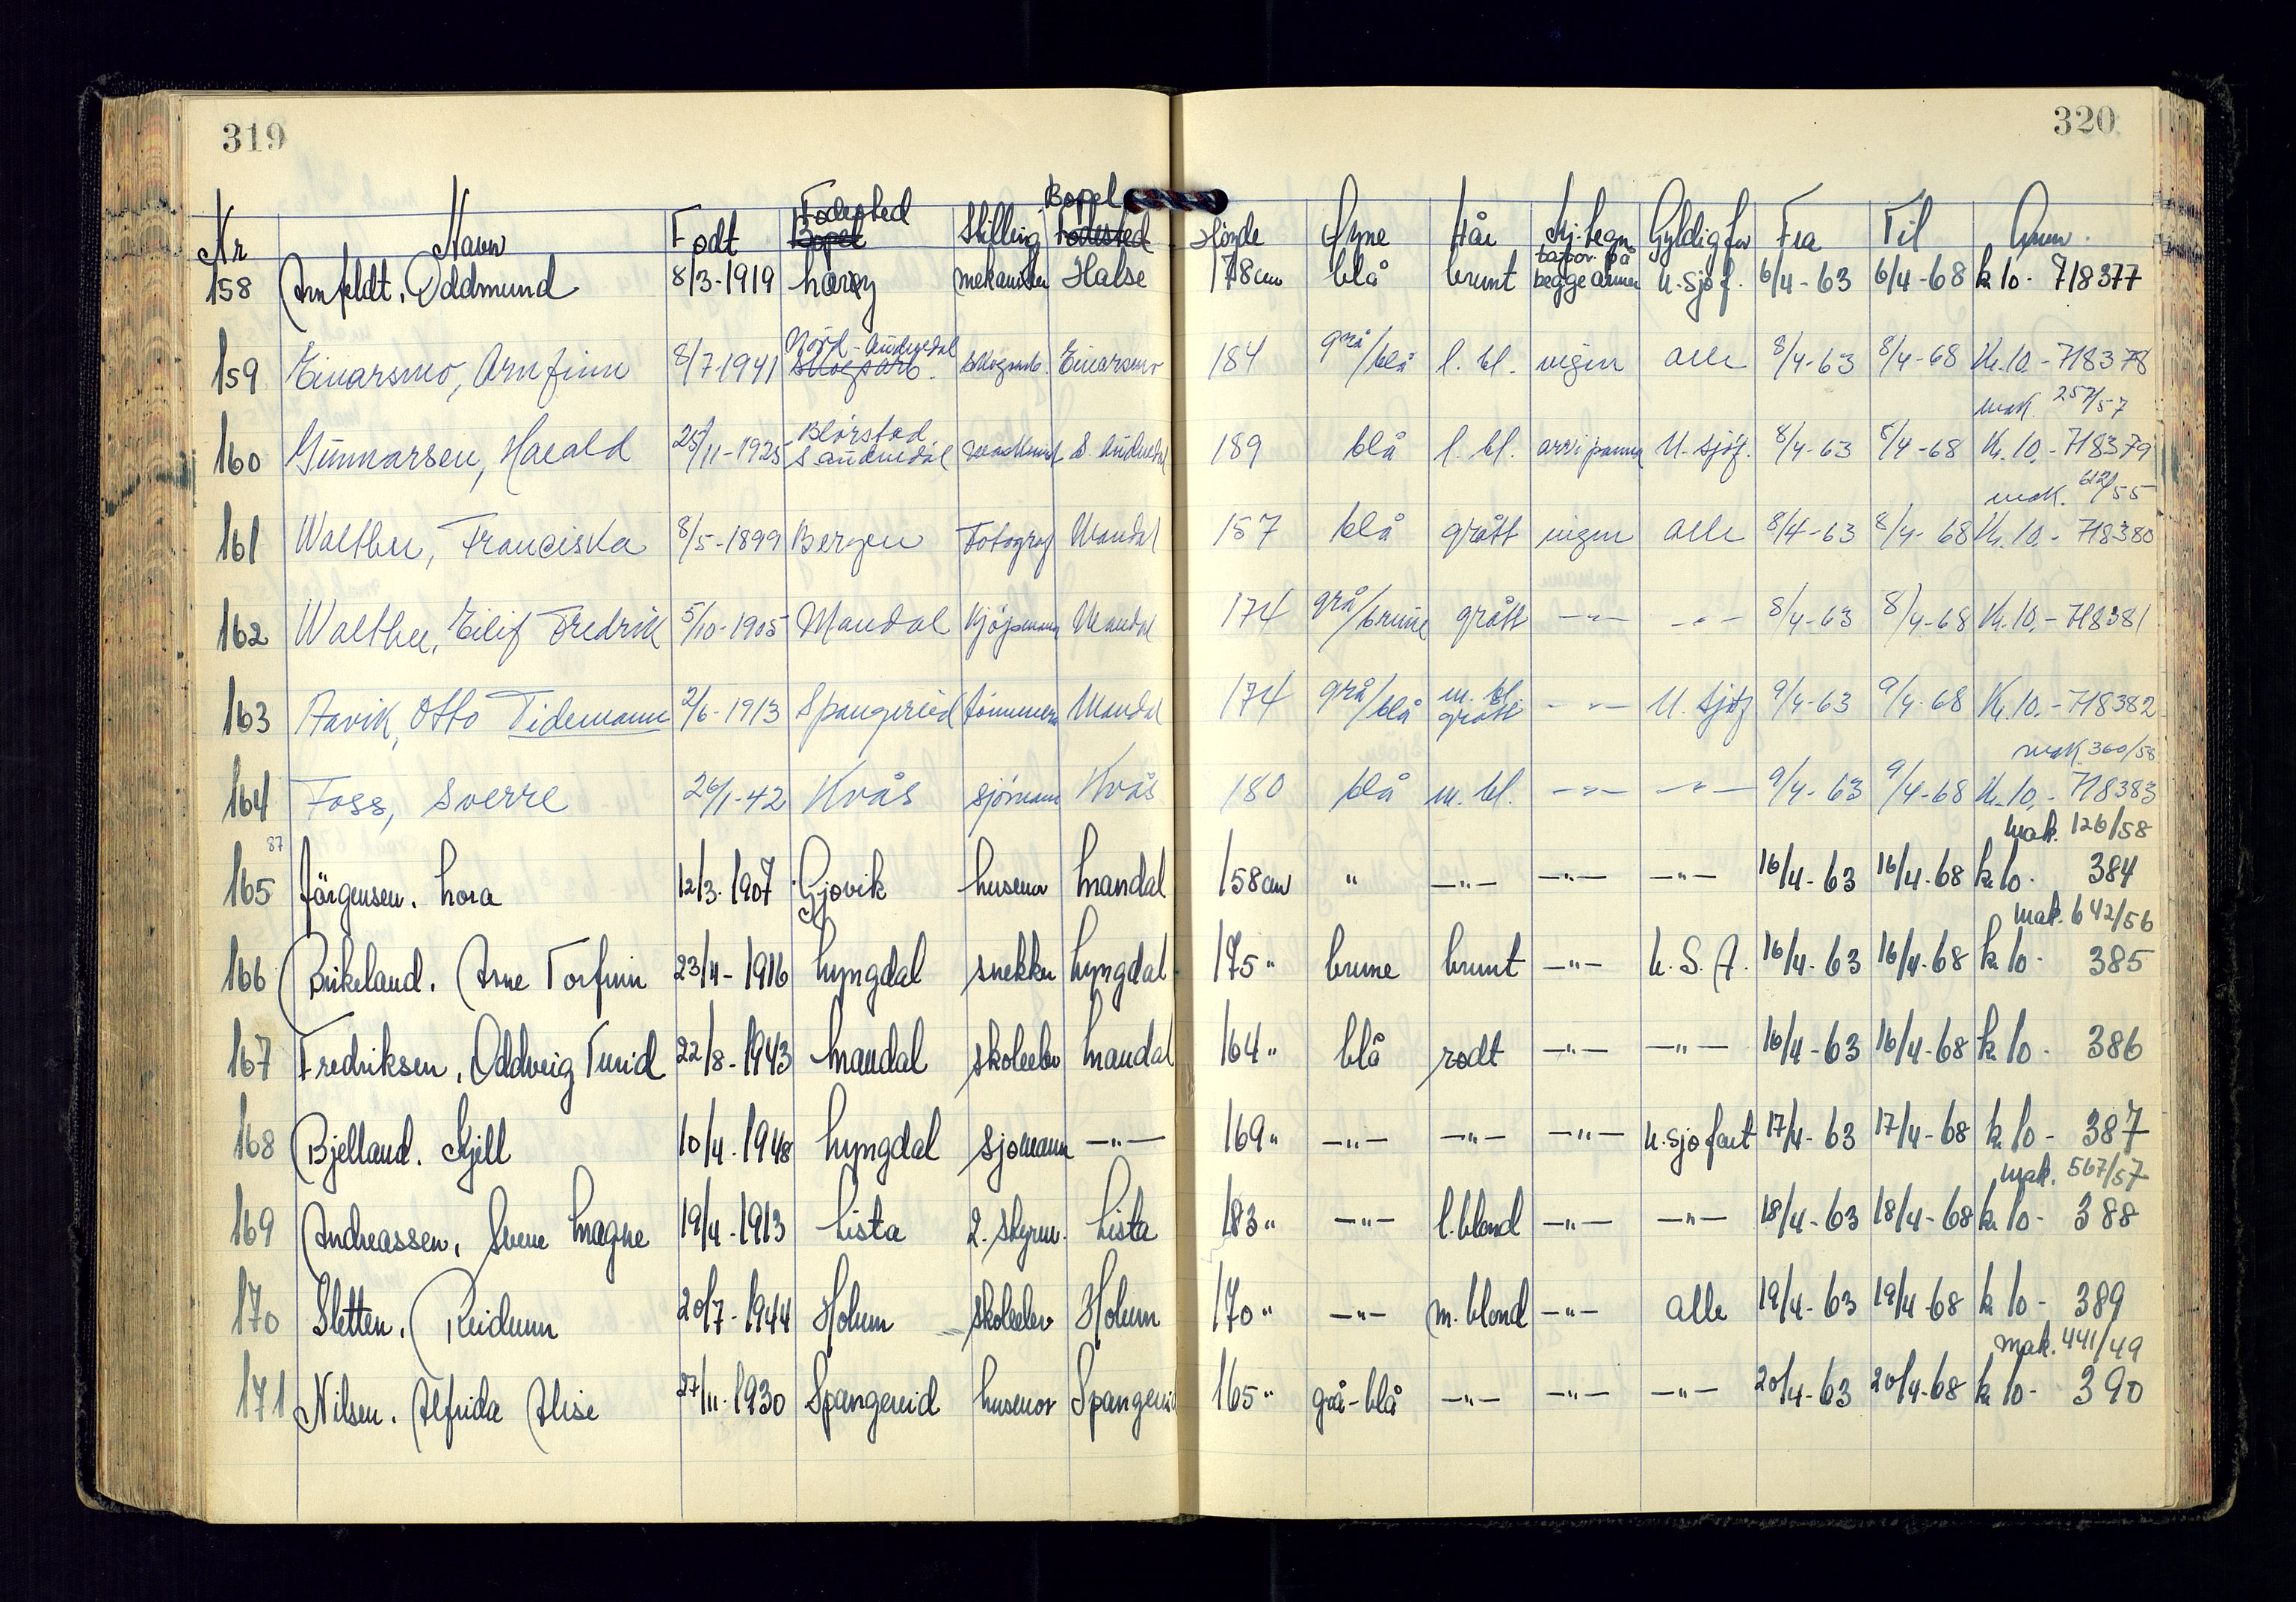 319
320
Nr Navn Født Fødested Bopel Stilling Bopel Fødested Høyde Øyne Hår Sj. tegn Gyldig for Fra Til Anm.
158 Arnfeldt, Oddmund 8/3-1919 Halse 178 cm blå brunt tatov. på begge armer U. sjøf. 6/4-63 6/4-68 k 10- 718377
159 Einarsmo, Arnfinn 8/7-1941 Nord-Audnedal Skogsarb. Einarsmo 184 grå/blå l. bl. ingen alle 8/4-63 8/4-68 Kr. 10.- 718378
mak. 257/57
160 Gunnarsen, Harald 25/11-1925 S. Audnedal S. Audnedal 189 blå l. bl. arr i panna U. sjöf. 8/4-63 8/4-68 Kr. 10.- 718379
mak. 612/55
161 Walther, Franciska 8/5-1899 Bergen Fotograf Mandal 157 blå grått ingen alle 8/4-63 8/4-68 Kr. 10.- 718380
162 Walther, Eilif Fredrik 5/10-1905 Mandal Kjøpmann Mandal 174 grå/brune grått -"- -"- 8/4-63 8/4-68 Kr. 10.- 718381
163 Aavik, Otto Tidemann 2/6-1913 Spangereid Mandal 174 grå/blå m. bl. grått -"- U. sjøf 9/4-63 9/4-68 Kr. 10.- 718382
mak. 360/58
164 Foss, Sverre 26/1-42 Kvås sjömann Kvås 180 blå m. bl. -"- -"- 9/4-63 9/4-68 Kr. 10.- 718383
mak. 126/58
87
165 Jörgensen. Lora 12/3-1907 Gjøvik husmor Mandal 158 cm " -"- -"- -"- 16/4-63 16/4-68 k 10- 384
mak. 642/56
166 Birkeland. Arne Torfinn 23/4-1916 Lyngdal snekker Lyngdal 175 " brune brunt -"- U.S.A. 16/4-63 16/4-68 k 10- 385
167 Fredriksen. Oddveig Turid 22/8-1943 Mandal skoleelev Mandal 164 " blå rødt -"- -"- 16/4-63 16/4-68 k 10- 386
168 Bjelland. Kjell 10/4-1948 Lyngdal sjømann -"- 169 " -"- -"- -"- U. sjøfart 17/4-63 17/4-68 k 10- 387
mak. 567/57
169 Andreassen. Svene Magne 19/4-1913 Lista 2. styrm. Lista 183 " -"- l. blond -"- -"- 18/4-63 18/4-68 k 10- 388
170 Sletten. Reidunn 20/7-1944 Holum skoleelev Holum 170 " -"- m. blond -"- alle 19/4-63 19/4-68 k 10- 389
mak. 441/49
171 Nilsen. Alfrida Alise 27/11-1930 Spangereid husmor Spangereid 165 " grå-blå -"- -"- -"- 20/4-63 20/4-68 k 10- 390